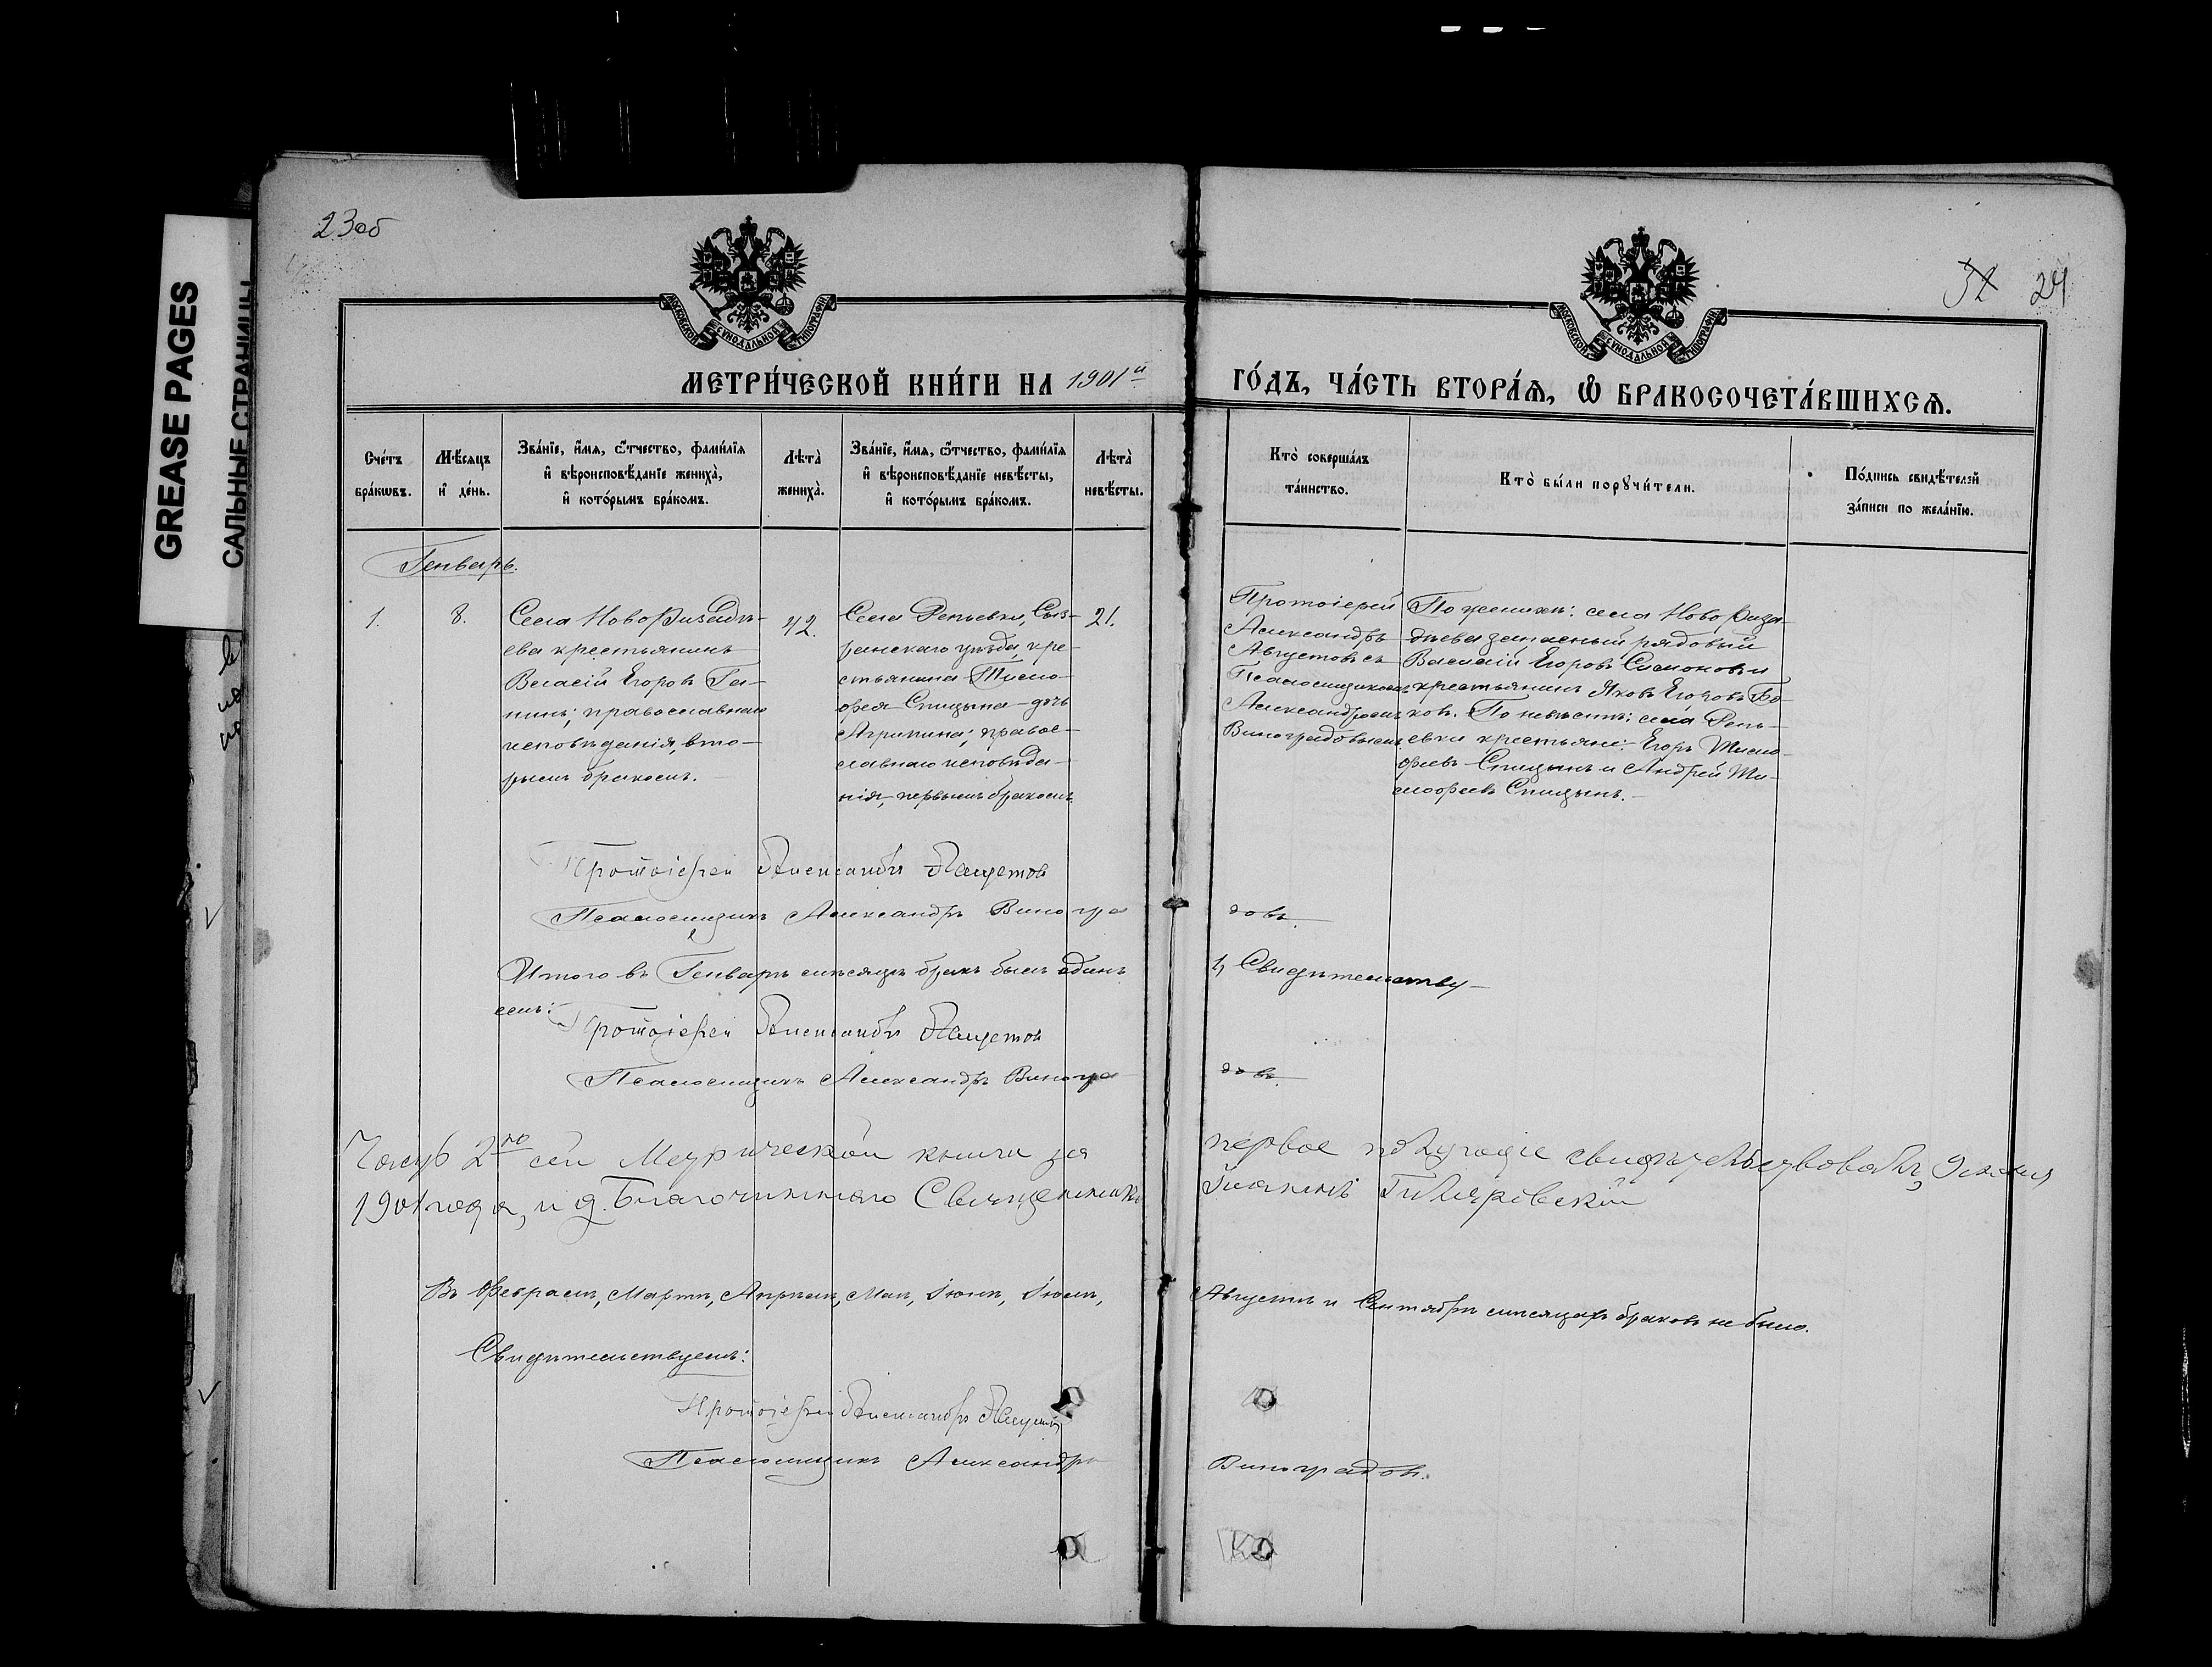 GREASE PAGES
САЛЬНЫЕ СТРАНИЦЫ
23об
32 24
МОСКОВСКОЙ СѴНОДАЛЬНОЙ ТИПОГРАФІИ
МОСКОВСКОЙ СѴНОДАЛЬНОЙ ТИПОГРАФІИ
МЕТРИ́ЧЕСКОЙ КНИ́ГИ НА 1901й
ГО́ДЪ, ЧА́СТЬ ВТОРА́Ѧ, Ѽ БРАКОСОЧЕТА́ВШИХСѦ.
Сче́тъ
бра́кѡвъ.
Мѣ́сѧцъ
и҆ де́нь.
Зва́нїе, и҆́мѧ, ѻ҆́тчество, фами́лїѧ
и҆ вѣроисповѣ́данїе жениха̀,
и҆ кото́рымъ бра́комъ.
Лѣта̀
жениха̀.
Зва́нїе, и҆́мѧ, ѻ҆́тчество, фами́лїѧ
и҆ вѣроисповѣ́данїе невѣ́сты,
и҆ кото́рымъ бра́комъ.
Лѣта̀
невѣ́сты.
Кто̀ соверша́лъ
та́инство.
Кто̀ бы́ли порꙋчи́тели.
По́дпись свидѣ́телей
за́писи по жела́нїю.
Генварь.
1.
8.
Села Новофизадѣ-
ева крестьянинъ
Власій Егоровъ Га-
нинъ; православнаго
исповѣданія, вто-
рымъ бракомъ.
42.
Села Репьевки, Сыз-
ранскаго уѣзда, кре-
стьянина Тимо-
фея Спицына - дочь
Агрипина; правос-
лавнаго исповѣда-
нія, первымъ бракомъ.
21.
Протоіерей
Александръ
Августовъ съ
Псаломщикомъ
Александромъ
Виноградовымъ.
По женихѣ: села Новофиза-
дѣева запасный рядовый
Василій Егоровъ Симоновъ и
крестьянинъ Яковъ Егоровъ Бо-
ковъ. По невѣстѣ: села Репь-
евки крестьяне: Егоръ Тимо-
феевъ Спицынъ и Андрей Ти-
мофеевъ Спицынъ.
Протоіерей Александръ
Псаломщикъ Александръ Виногра
довъ.
Итого въ Генварѣ мѣсяцѣ бракъ былъ одинъ
1, Свидѣтельству-
емъ:
Протоіерей Александръ
Псаломщикъ Александръ Виногра
довъ.
Часть 2ю сей Метрической книги за
первое полугодіе свидѣтельствовалъ,
1901 года, и д. Благочиннаго Священникъ
Іоаннъ
Въ Февралѣ, Мартѣ, Апрѣлѣ, Маѣ, Іюнѣ, Іюлѣ,
Августѣ и Сентябрѣ мѣсяцахъ браковъ не было.
Свидѣтельствуемъ:
Протоіерей Александръ
Псаломщикъ Александръ
Виноградовъ.